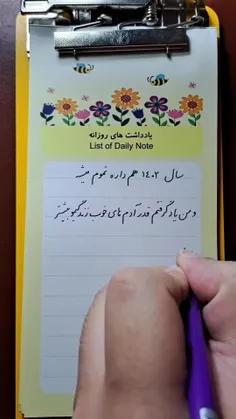 یادداشت های روزانه
List of Daily Note
سال ۱۴۰۲ هم داره تموم میشه
و من یاد گرفتم قدر آدم های خوب زندگیمو بیشتر